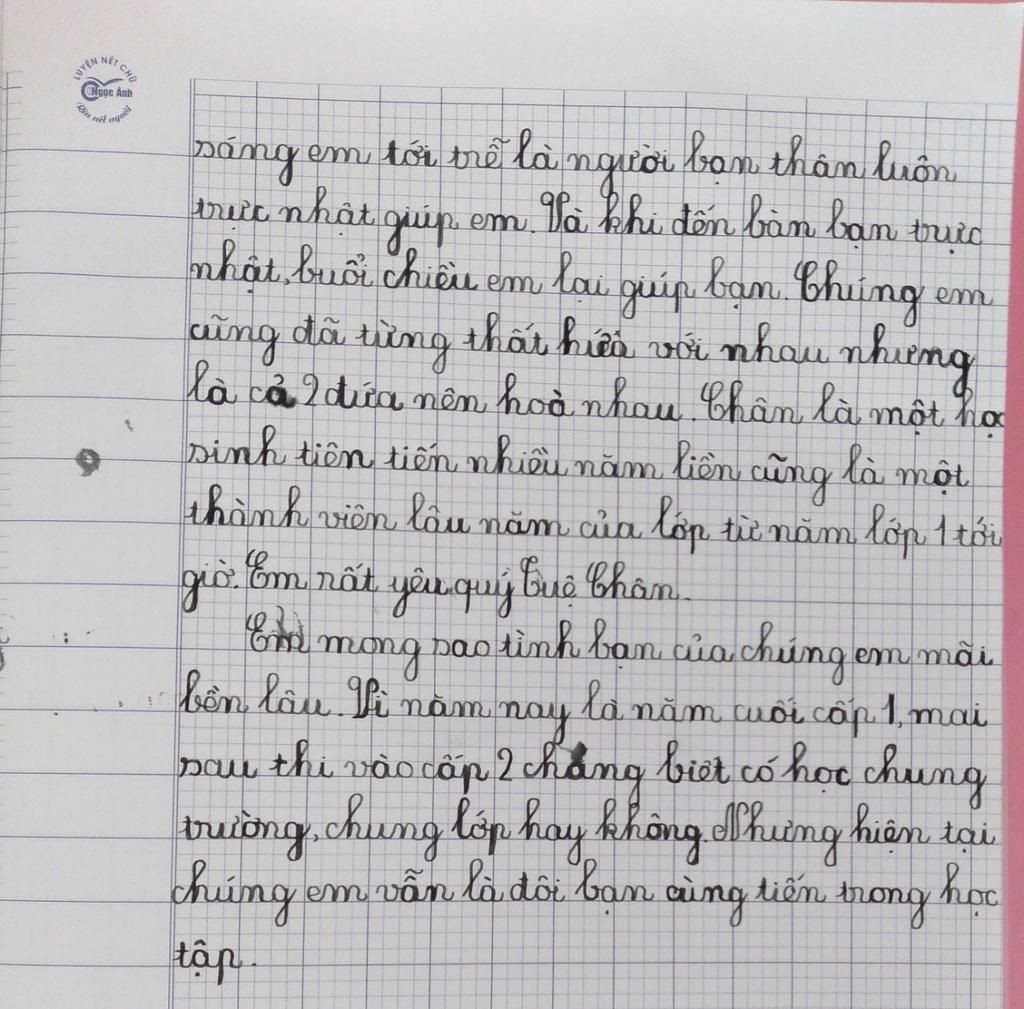 LUYỆN NÉT CHỮ
Ngọc Ánh
Rèn nết người
sáng em tới trễ là người bạn thân luôn
trực nhật giúp em. Và khi đến bàn bạn trực
nhật, buổi chiều em lại giúp bạn. Chúng em
cũng đã từng thất hứa với nhau nhưng
là cả 2 đứa nên hoà nhau. Chân là một học
sinh tiên tiến nhiều năm liền cũng là một
thành viên lâu năm của lớp từ năm lớp 1 tới
giờ. Em rất yêu quý Tuệ Chân.
Em mong sao tình bạn của chúng em mãi
bền lâu. Vì năm nay là năm cuối cấp 1, mai
sau thi vào cấp 2 chẳng biết có học chung
trường, chung lớp hay không. Nhưng hiện tại
chúng em vẫn là đôi bạn cùng tiến trong học
tập.